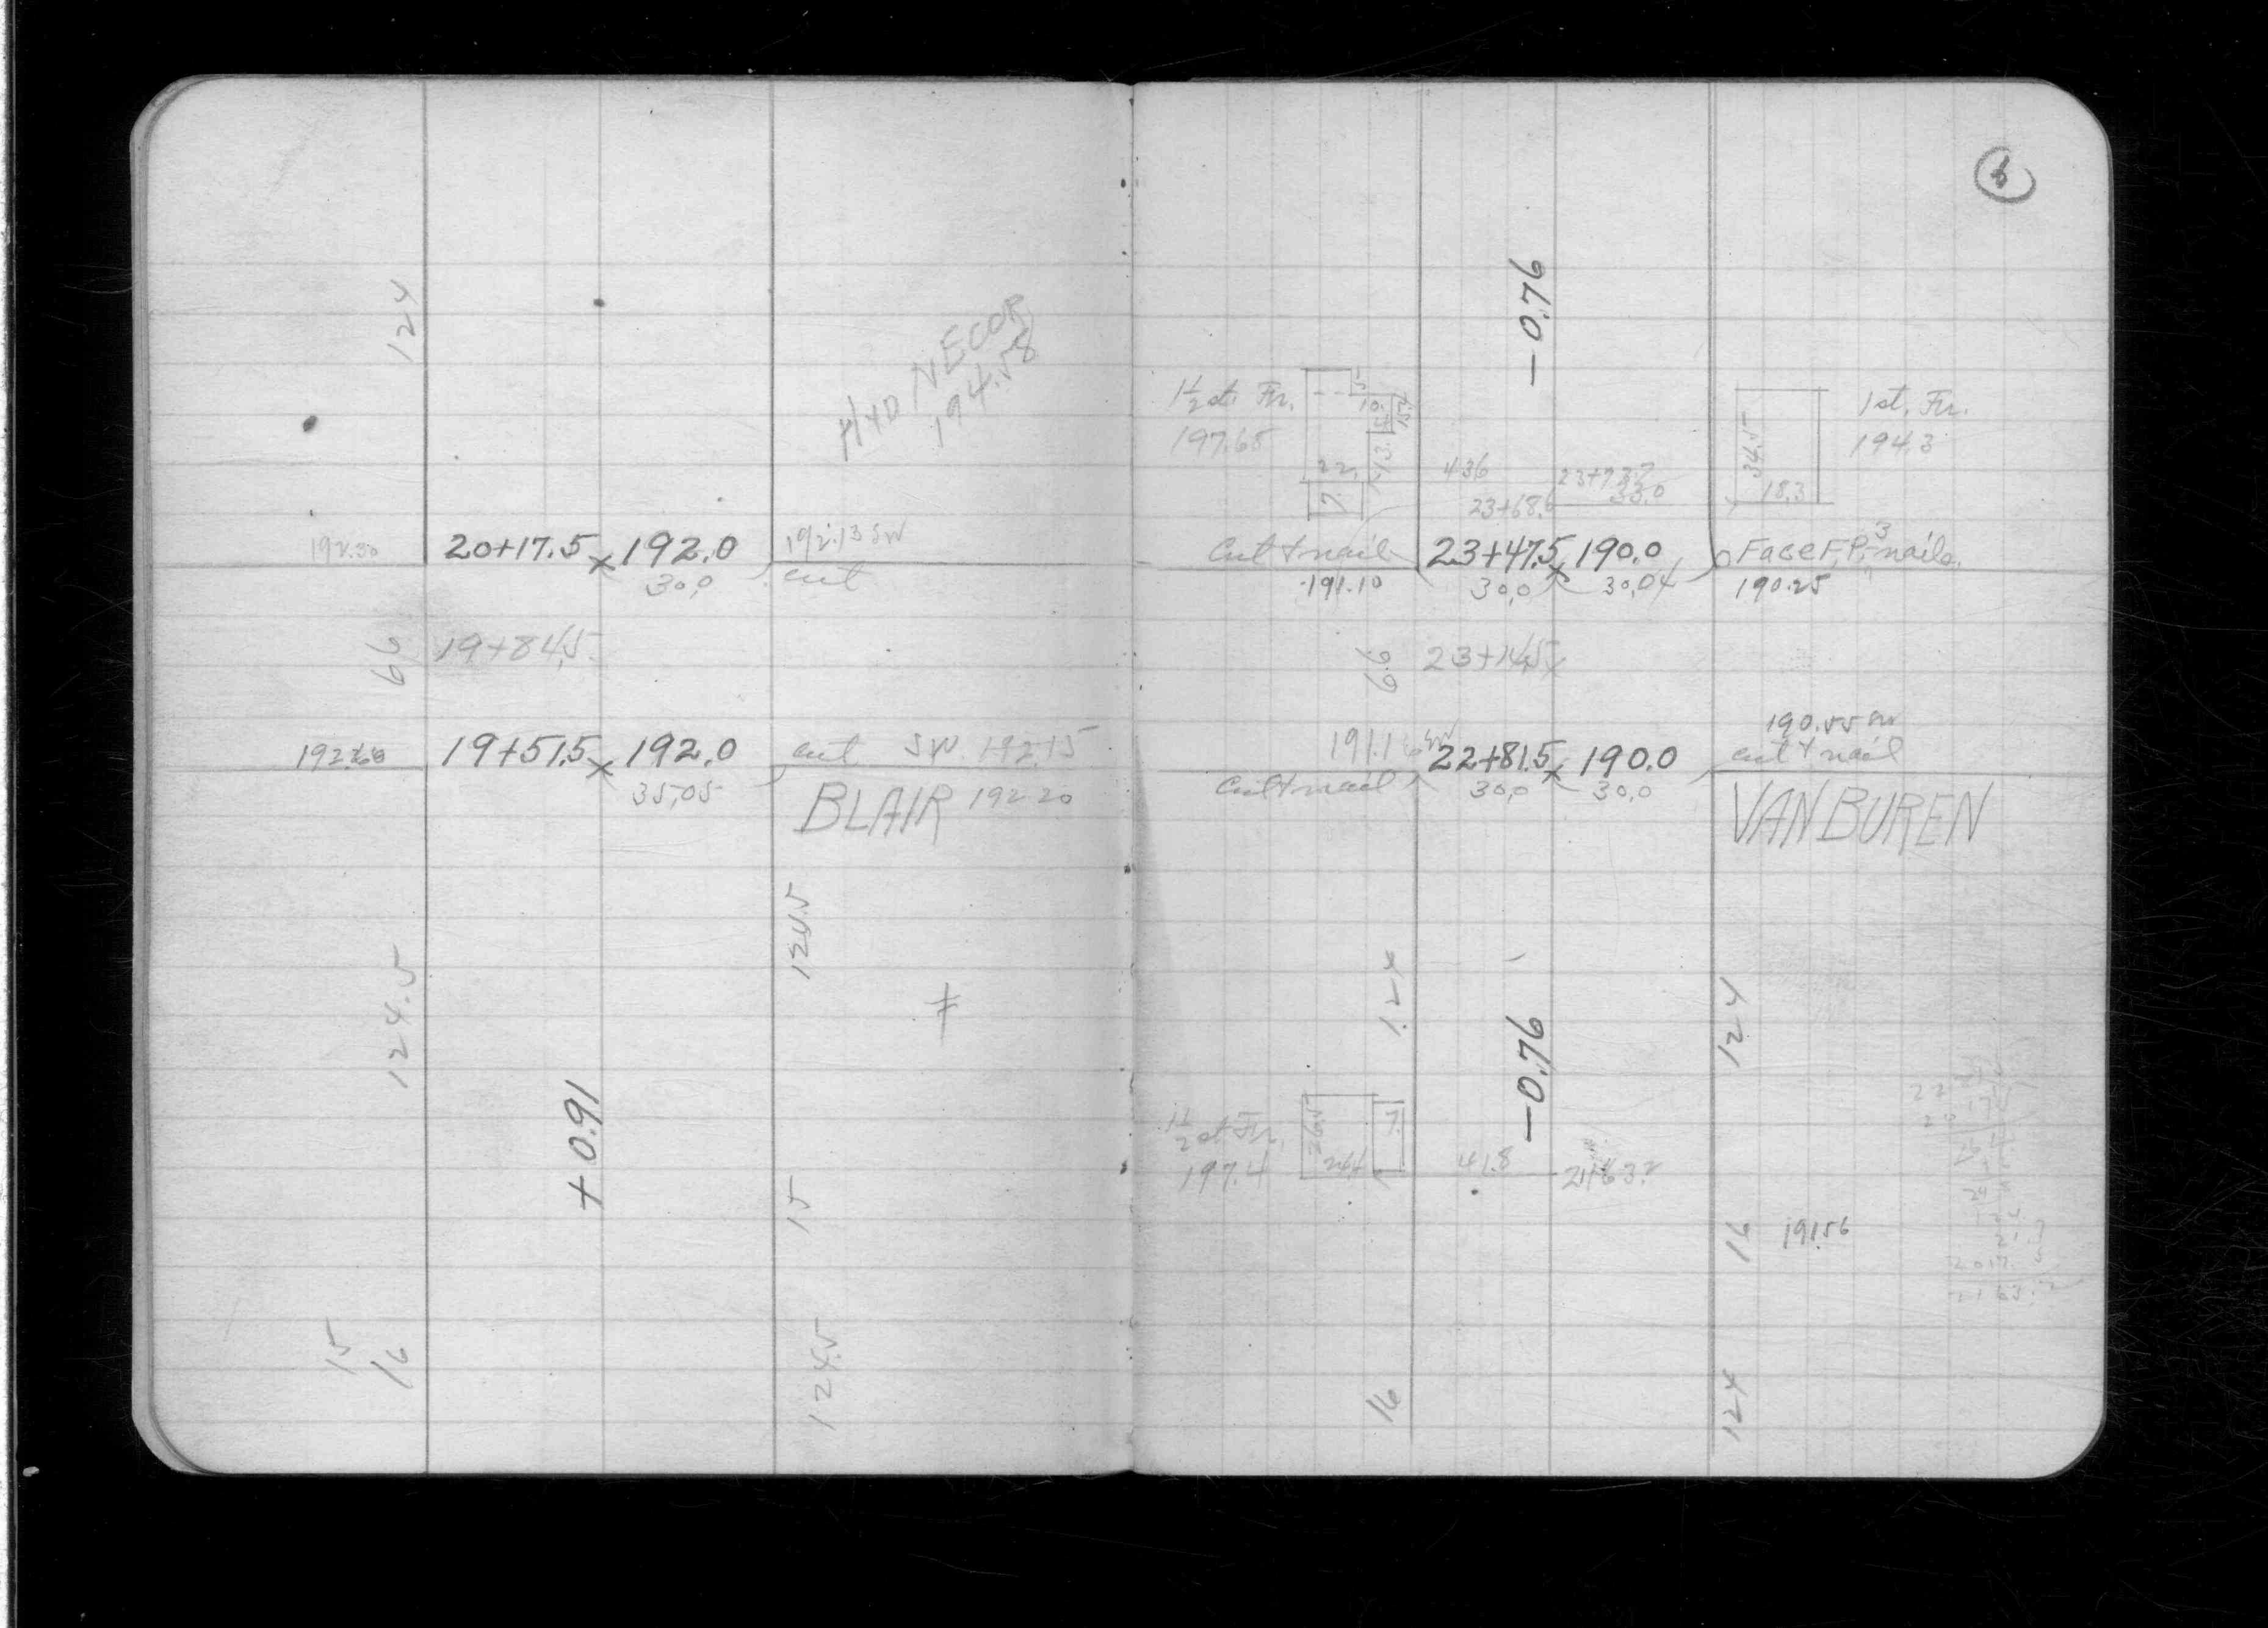 124
HYD NE COR
194.58
192.30 20+17.5 x 192.0 192.13 SW
30.0 cut
66 19+84.5
19+51.5 x 192.0 cut SW 192.15
35.05
BLAIR 192.20
124.5
124.5
+0.91
15
15
16
124.5
6
-0.76
1½ st. Fr.
197.65
5
10.
15.
13.
22.
7.
436
23+93.7
33.0
23+68.6
34.5
18.3
1 st. Fr.
194.3
Cut + nail 23+47.5 x 190.0 Face F.P. 3 nails.
191.10 30.0 30.04 190.25
66 23+14.5
190.55 SW
22+81.5 x 190.0 cut + nail
Cut + nail 30.0 30.0
VAN BUREN
124
124
-0.76
1½ st Fr.
197.4
26.5
24.4
7.
41.8
21+63.2
16 191.56
2017.5
2163.2
16
124